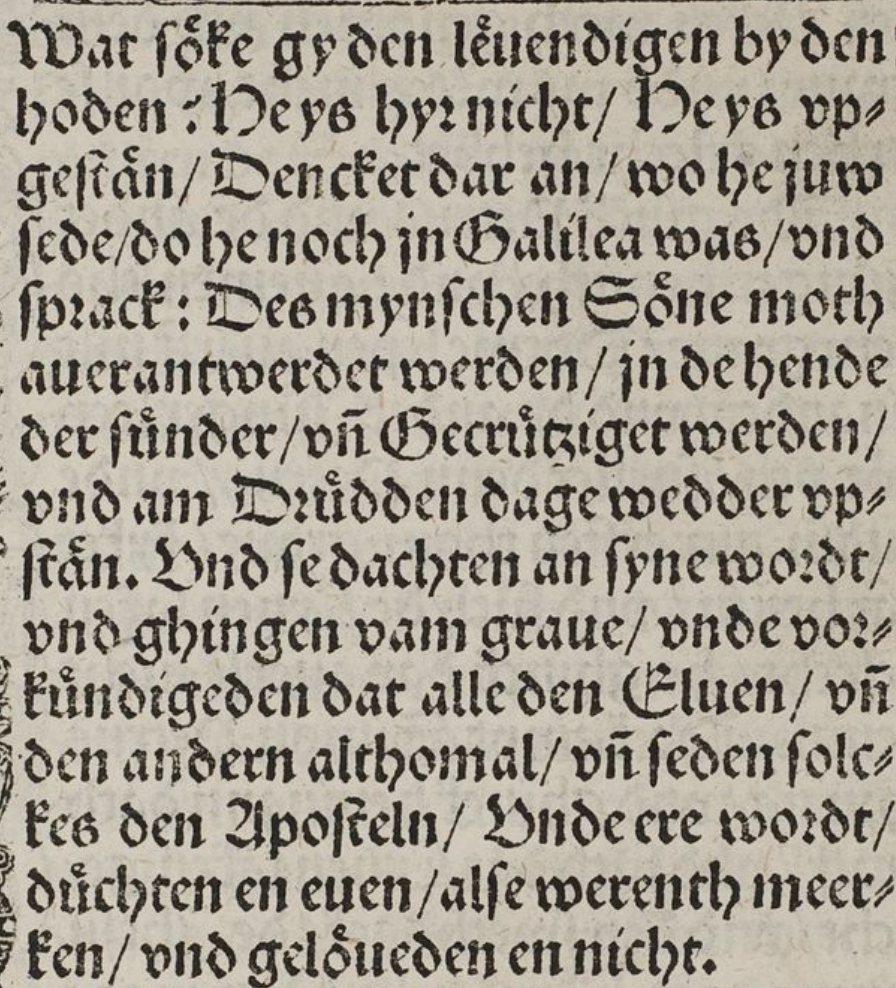 Wat soͤke gy den leͤuendigen by den
doden? He ys hyr nicht/ He ys vp⸗
geſtaͤn/ Dencket dar an/ wo he juw
ſede/do he noch jn Galilea was/vnd
ſprack: Des mynſchen Soͤne moth
auerantwerdet werden/ jn de hende
der ſuͤnder/vñ Gecruͤtziget werden/
vnd am Druͤdden dage wedder vp⸗
ſtaͤn. Vnd ſe dachten an ſyne wordt/
vnd ghingen vam graue/ vnde vor⸗
kuͤndigeden dat alle den Eluen/ vñ
den andern althomal/ vñ ſeden ſolc⸗
kes den Apoſteln/ Vnde ere wordt/
duͤchten en euen/alſe werenth meer⸗
ken/ vnd geloͤueden en nicht.